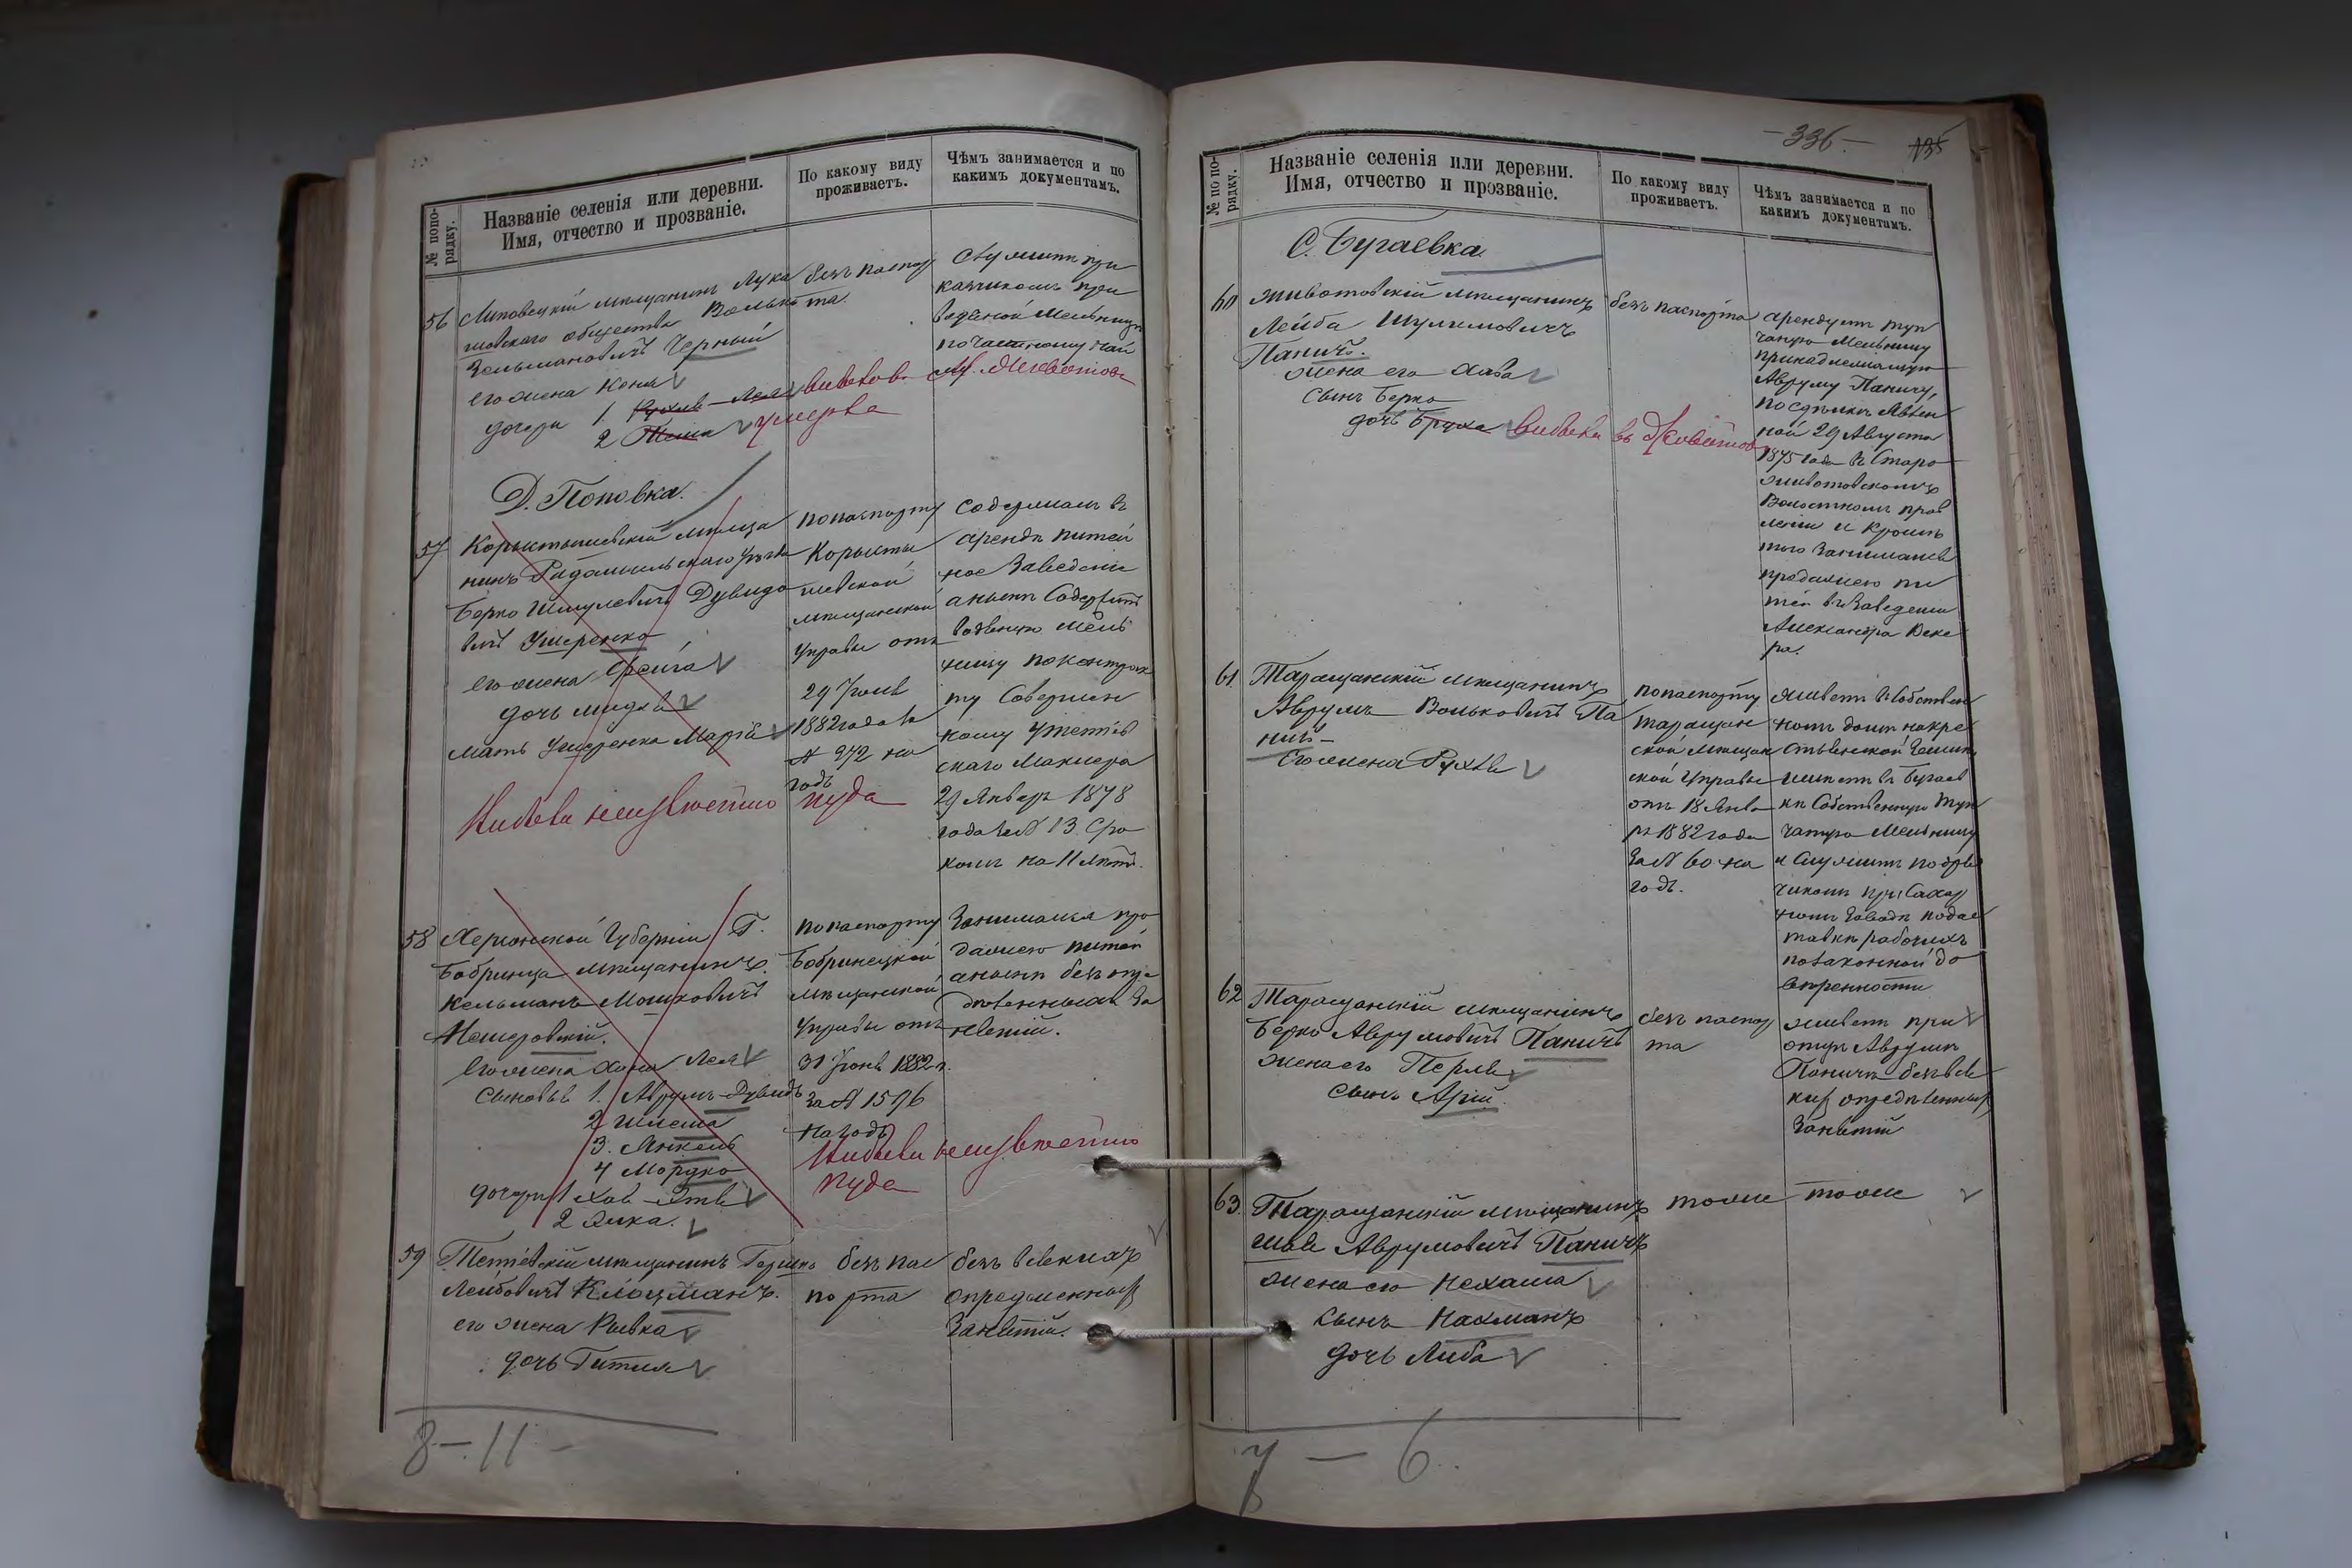 № попо-
рядку.
Названіе селенія или деревни.
Имя, отчество и прозваніе.
По какому виду
проживаетъ.
Чѣмъ занимается и по
какимъ документамъ.
56 Липовецкій мѣщанинъ Лука
шовскаго общества Волько
Зельмановичъ Черный
его жена Кеня
дочери 1 Рухля-Лея
2
безъ паспор
та.
выбыхов. м. Животовъ
умерла
Служитъ при
кащикомъ при
водяной мельницѣ
по частному най
Д. Поповка.
57 Коростышевскій мѣща
нинъ Радомысльскаго уѣзда
Берко Шмулевичъ Дувидо
вичъ Ушеренко
его жена Фейга
дочь
мать Ушеренко Марія
по паспорту
Коросты
шевской
мѣщанской
управы отъ
29 Іюня
1882 года за
№ 972 на
годъ
Содержалъ въ
арендѣ питей
ное заведеніе
а нынѣ содержитъ
водяную мель
ницу по контрак
ту Совершен
ному у Тетіев
скаго Маклера
29 Январь 1878
года за № 13 сро
комъ на 11 лѣтъ.
Выбыли неизвѣстно куда
58 Херсонской Губерніи Г.
Бобринца мѣщанинъ
Кельманъ Мошковичъ
его жена Хана Лея
сыновья 1. Аврумъ-Дувидъ
2 Шлема
3. Янкель
4 Мордко
дочери 1 Хая-Этля
2
по паспорту
Бобринецкой
мѣщанской
управы отъ
31 Іюня 1882 г.
за № 1596
на годъ
Занимался про
дажею питей
а нынѣ безъ опре
дѣленныхъ за
нятій.
Выбыли неизвѣстно
куда
59 Тетіевскій мѣщанинъ Гершко
Лейбовичъ Клоцманъ.
его жена Рывка
дочь Гитля
безъ пас
порта
безъ всякихъ
опредѣленныхъ
занятій.
8 – 11 –
– 336. –
135
№ по по-
рядку.
Названіе селенія или деревни.
Имя, отчество и прозваніе.
По какому виду
проживаетъ.
Чѣмъ занимается и по
какимъ документамъ.
С. Бугаевка.
60 Животовскій мѣщанинъ
Лейба Шулимовичъ
Паничъ.
жена его Хава
сынъ Берко
дочь Бруха выбыли въ Животов
безъ паспорта
арендуетъ туп
чатую мельницу
принадлежащую
Авруму Паничу,
по сдѣлкѣ явлен
ной 29 Августа
1875 года въ Старо
животовскомъ
Волостномъ прав
леніи и кромѣ
того занимается
продажею пи
тей въ заведеніи
Александра
ра.
61. Таращанскій мѣщанинъ
Аврумъ Вольковичъ Па
ничъ
Его жена Рухля
по паспорту
таращан
ской мѣщан
ской управы
отъ 18 Янва
ря 1882 года
за № 60 на
годъ.
живетъ въ собствен
номъ домѣ на кре
стьянской землѣ
имѣетъ въ Бугаев
кѣ собственную туп
чатую мельницу
и служитъ подряд
чикомъ при Сахар
номъ заводѣ по дос
тавкѣ рабочихъ
по законной до
вѣренности
62 Таращанскій мѣщанинъ
Берко Аврумовичъ Паничъ
жена его Перля
сынъ Арій.
безъ паспор
та
живетъ при
отцѣ Аврумѣ
Паничѣ безъ вся
кихъ опредѣленныхъ
занятій
63. Таращанскій мѣщанинъ
Аврумовичъ Паничъ
жена его Нехама
сынъ Нахманъ
дочь Либа
тоже
тоже
7 – 6.